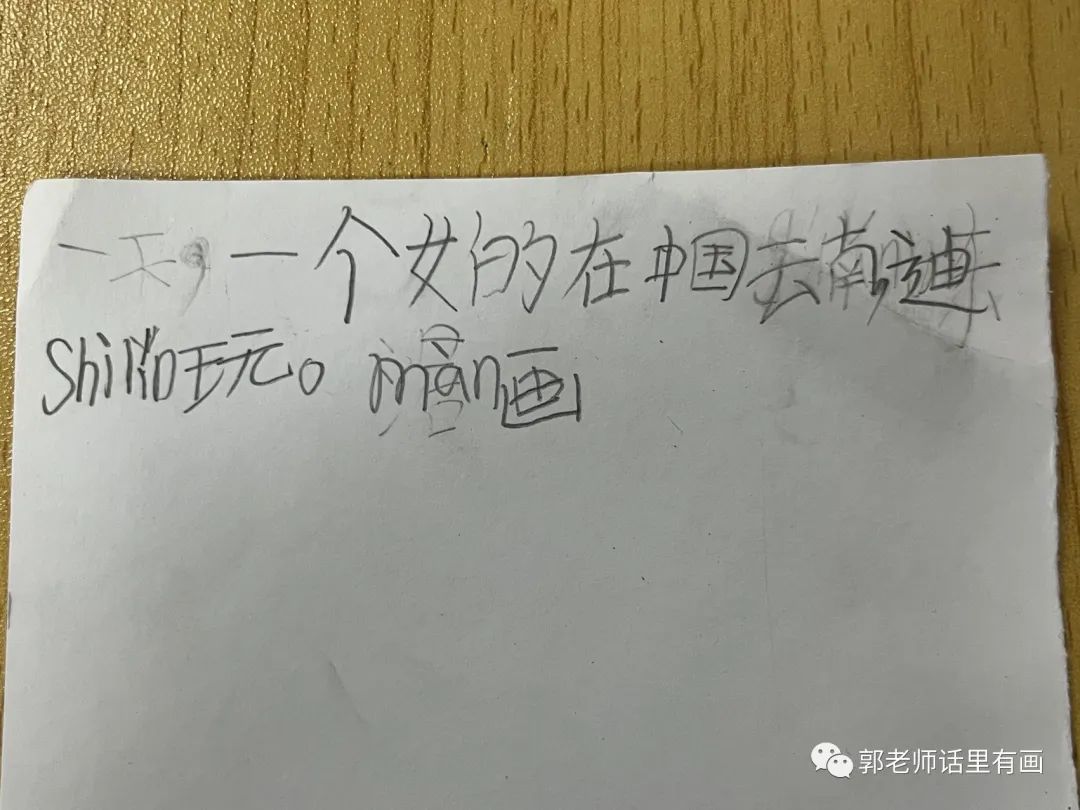 一天，一个女的在中国去南迪
shilin玩。man画
郭老师话里有画